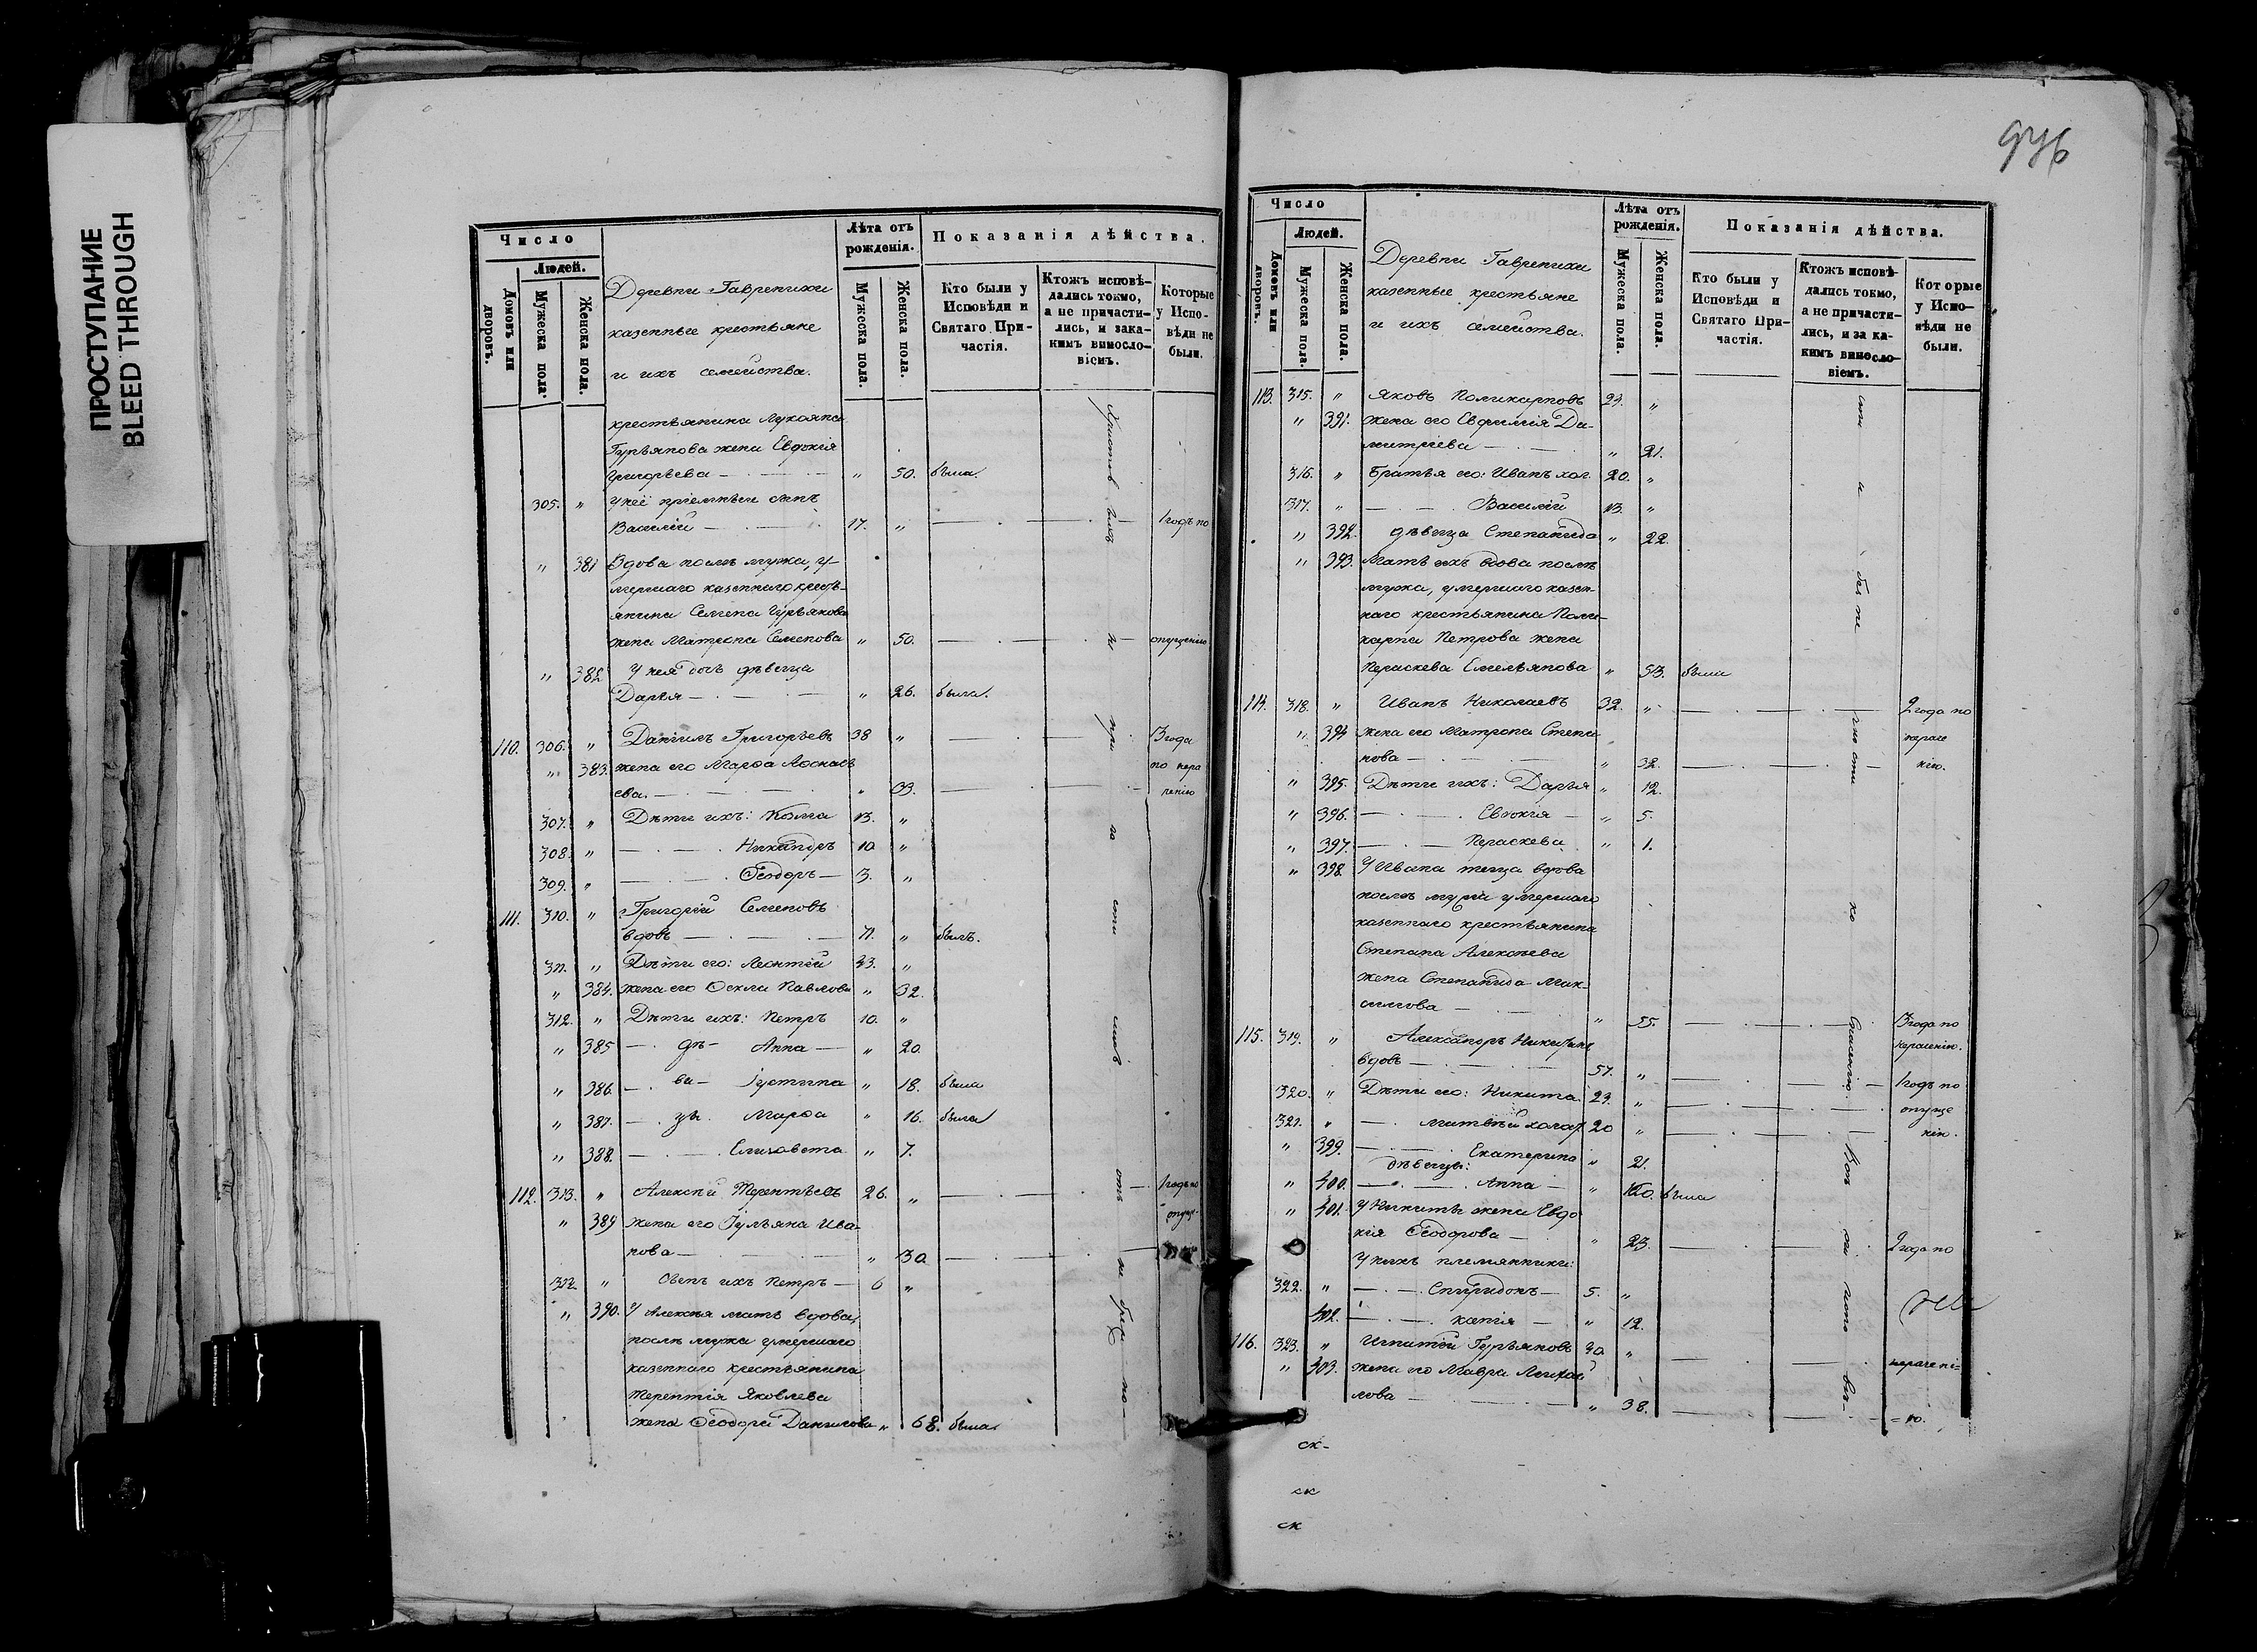 ПРОСТУПАНИЕ
BLEED THROUGH
Число
Людей.
Домовъ или дворовъ.
Мужеска пола.
Женска пола.
Деревни Гавренихи
казенные крестьяне
и ихъ семейства.
Лѣта отъ рожденія.
Мужеска пола.
Женска пола.
Показанія дѣйства.
Кто были у Исповѣди и Святаго Причастія.
Ктожъ исповѣдались токмо, а не причастились, и закакимъ винословіемъ.
Которые у Исповѣди не были.
крестьянина
Гурьянова жена Евдокія
Григорьева — " 50. была.
305. " У неё пріемышъ сынъ
Василій — 17. " — 1 годъ по
" 381 Вдова послѣ мужа, у-
мершаго казеннаго кресть-
янина Семена Гурьянова
жена Матрона Семенова " 50. — опущенію
" 382 У нея дочь дѣвица
Дарья — " 26. была.
110. 306. " Даніилъ Григорьевъ 38 " — 3 года
" 383. жена его Марѳа
ева. — " — по нера
307. " Дѣти ихъ: Козма 13. " ченію
308. " — Никандръ 10. "
309. " — Ѳеодоръ — 3. "
111. 310. " Григорій Семеновъ
вдовъ — 71. " былъ.
311. " Дѣти его: Леонтій 33. "
" 384. жена его Ѳекла Павлова " 32.
312. " Дѣти ихъ: Петръ 10. "
" 385 — дѣ- Анна — " 20.
" 386. — ви- Іустина " 18. была
" 387. — цы. Марѳа " 16. была
" 388. — Елизавета " 7.
112. 313. " Алексѣй Терентьевъ 26. " — 1 годъ по
" 389 жена его Іульяна Ива- опуще-
нова — " 30.
314. " Сынъ ихъ Петръ — 6 "
" 390. У Алексѣя мать вдова,
послѣ мужа умершаго
казеннаго крестьянина
Терентія Яковлева
жена Ѳеодора Данилова " 68. была.
946
Число
Людей.
Домовъ или дворовъ.
Мужеска пола.
Женска пола.
Деревни Гавренихи
казенные крестьяне
и ихъ семейства.
Лѣта отъ рожденія.
Мужеска пола.
Женска пола.
Показанія дѣйства.
Кто были у Исповѣди и Святаго Причастія.
Ктожъ исповѣдались токмо, а не причастились, и за какимъ винословіемъ.
Которые у Исповѣди не были.
113. 315. " Яковъ Поликарповъ 23. "
" 391. жена его Евфимія Ди-
митріева — " 21.
316. " Братья его: Иванъ хол. 20. "
317. " — Василій 13. "
" 392. дѣвица Степанида " 22.
" 393. Мать ихъ вдова послѣ
мужа, умершаго казен-
наго крестьянина Поли-
карпа Петрова жена
Параскева Емельянова " 53. была
114. 318. " Иванъ Николаевъ 32. " — 2 года по
" 394 жена его Матрона Степа нераче
нова — " 32. — нію.
" 395. Дѣти ихъ: Дарья " 12.
" 396. — Евдокія — " 5.
" 397. — Параскева " 1.
" 398. У Ивана теща вдова
послѣ мужа умершаго
казеннаго крестьянина
Степана Алексѣева
жена Степанида Мак-
симова — " 55. — 3 года по
115. 319. " Александръ Никитинъ нераченію.
вдовъ — 51. " — 1 годъ по
320. " Дѣти его: Никита 23. " — опуще
321. " — Матвѣй холос. 20 " — нію.
" 399. — Екатерина " 21.
дѣвицы:
" 400. — Анна — " 20. была
" 401. У Никиты жена Евдо
кія Ѳеодорова — " 23. — 2 года по
У нихъ племянники:
322. " — Спиридонъ — 5. "
402. — " 12.
116. 323. " Игнатій Гурьяновъ 40. " — нерачені-
" 403. жена его Мавра Михаи
лова — " 38. — = ю.
ск-
ск
ск